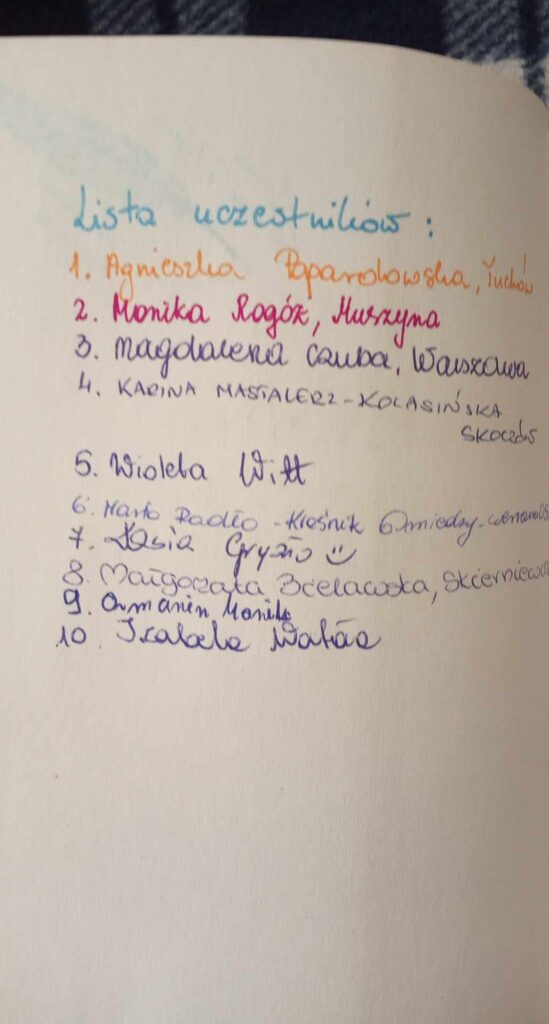 Lista uczestników :
1. Agnieszka Paparchowska, Tuchów
2. Monika Rogóż, Muszyna
3. Magdalena Czuba, Warszawa
4. KARINA MASTALERZ-KOLASIŃSKA
SKOCZÓW
5. Wioleta Witt
6. Marta Radło - Kraśnik
7. Kasia Gryzło
8. Małgorzata Bielawska,
9. Monika
10. Izabela